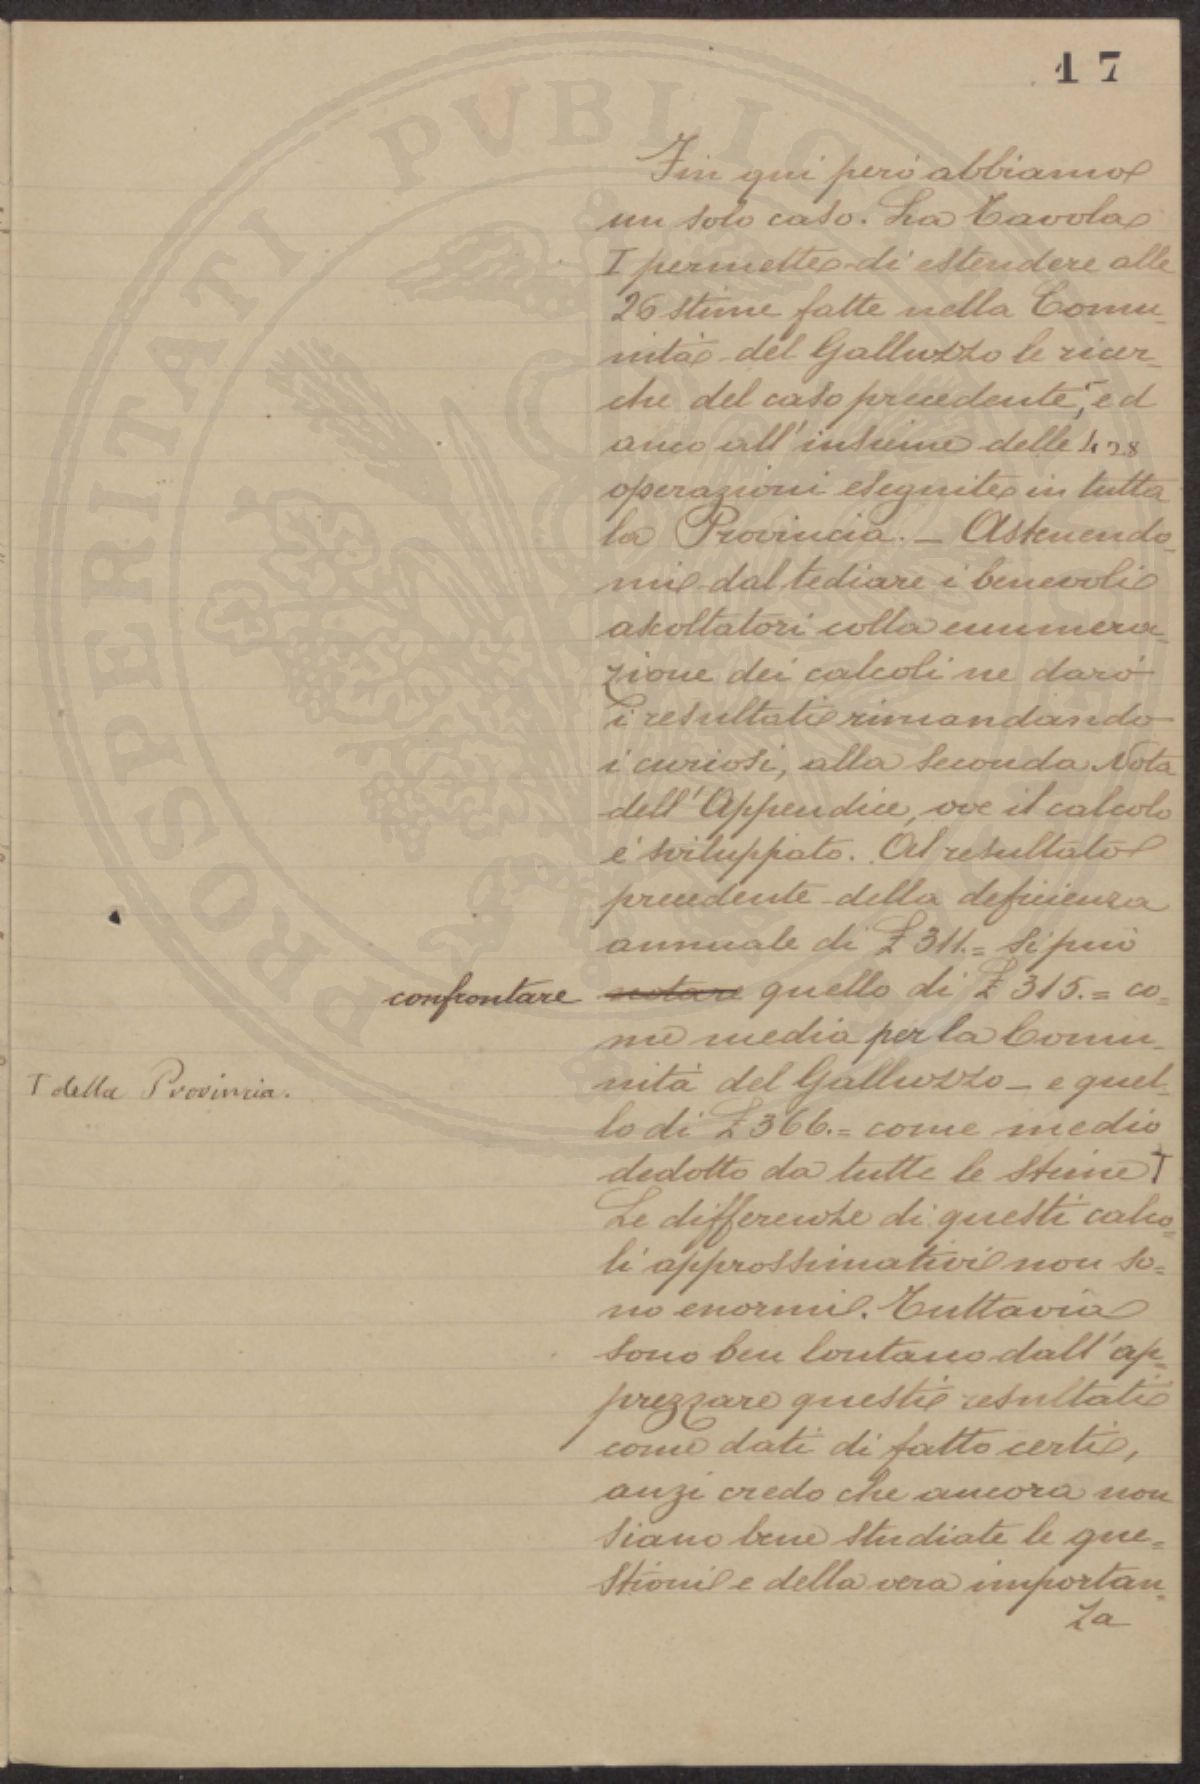 17
Fin qui però abbiamo
un solo caso. La Tavola
I permette di estendere alle
26 stime fatte nella Comu-
nità del Galluzzo le ricer-
che del caso precedente, ed
anco all'insieme delle 428
operazioni eseguite in tutta
la Provincia. – Astenendo-
mi dal tediare i benevoli
ascoltatori colla enumera-
zione dei calcoli ne darò
i resultati rimandando
i curiosi, alla seconda Nota
dell'Appendice, ove il calcolo
è sviluppato. Al resultato
precedente della deficienza
annuale di £ 311.= si può
confrontare notare quello di £ 315.= co=
me media per la Comu-
nità del Galluzzo – e quel-
T della Provincia.
lo di £ 366.= come medio
dedotto da tutte le stime T
Le differenze di questi calco=
li approssimativi non so=
no enormi. Tuttavia
sono ben lontano dall'ap-
prezzare questi resultati
come dati di fatto certi,
anzi credo che ancora non
siano bene studiate le que=
stioni e della vera importan-
za
PROSPERITATI PVBLICAE